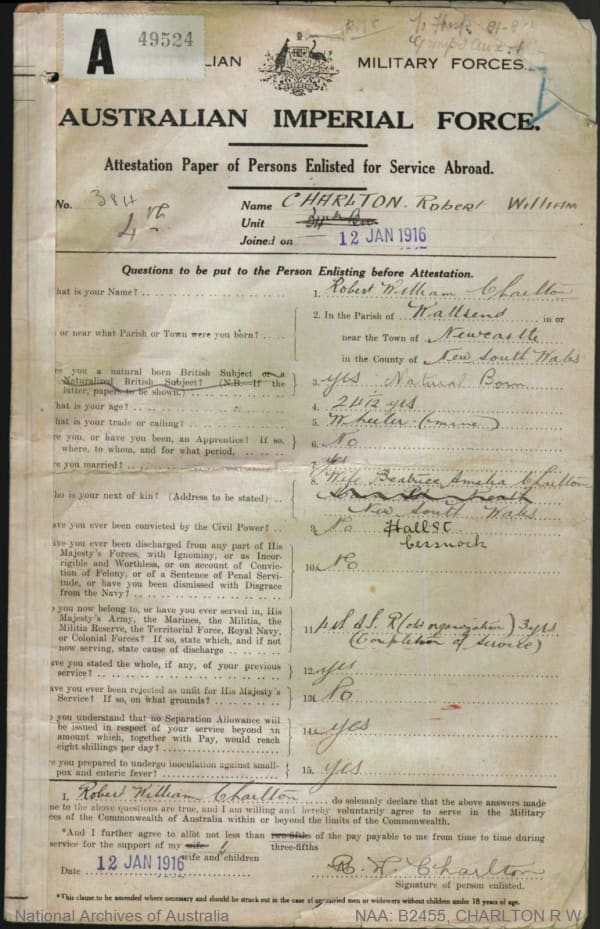 A 49524
ALIAN MILITARY FORCES.
AUSTRALIAN IMPERIAL FORCE.
Attestation Paper of Persons Enlisted for Service Abroad.
No. 384 Name CHARLTON Robert William
4th Unit
Joined on 12 JAN 1916
Questions to be put to the Person Enlisting before Attestation.
hat is your Name? 1. Robert William Charlton
or near what Parish or Town were you born? 2. In the Parish of Wallsend in or
near the Town of Newcastle
in the County of New South Wales
re you a natural born British Subject or a
Naturalized British Subject? (N.B. If the
latter, papers to be shown.) 3. yes Natural Born
hat is your age? 4. 24 yrs
hat is your trade or calling? 5. Wheeler (mine)
re you, or have you been, an Apprentice? If so,
where, to whom, and for what period, 6. No
re you married? 7. yes
ho is your next of kin? (Address to be stated) 8. Wife Beatrice Amelia Charlton
New South Wales
ave you ever been convicted by the Civil Power? 9. No Hall St
Cessnock
ave you ever been discharged from any part of His
Majesty's Forces, with Ignominy, or as Incor-
rigible and Worthless, or on account of Convic-
tion of Felony, or of a Sentence of Penal Servi-
tude, or have you been dismissed with Disgrace
from the Navy? 10. No
o you now belong to, or have you ever served in, His
Majesty's Army, the Marines, the Militia, the
Militia Reserve, the Territorial Force, Royal Navy,
or Colonial Forces? If so, state which, and if not
now serving, state cause of discharge 11. (old organization) 3 yrs
(Completion of Service)
ave you stated the whole, if any, of your previous
service? 12. yes
ave you ever been rejected as unfit for His Majesty's
Service? If so, on what grounds? 13. No
o you understand that no Separation Allowance will
be issued in respect of your service beyond an
amount which, together with Pay, would reach
eight shillings per day? 14. yes
re you prepared to undergo inoculation against small-
pox and enteric fever? 15. yes
I, Robert William Charlton do solemnly declare that the above answers made
me to the above questions are true, and I am willing and hereby voluntarily agree to serve in the Military
ces of the Commonwealth of Australia within or beyond the limits of the Commonwealth.
*And I further agree to allot not less than two-fifths of the pay payable to me from time to time during
three-fifths
service for the support of my wife
wife and children
Date 12 JAN 1916 R. W. Charlton
Signature of person enlisted.
*This clause to be amended where necessary and should be struck out in the case of unmarried men or widowers without children under 18 years of age.
National Archives of Australia NAA: B2455, CHARLTON R W